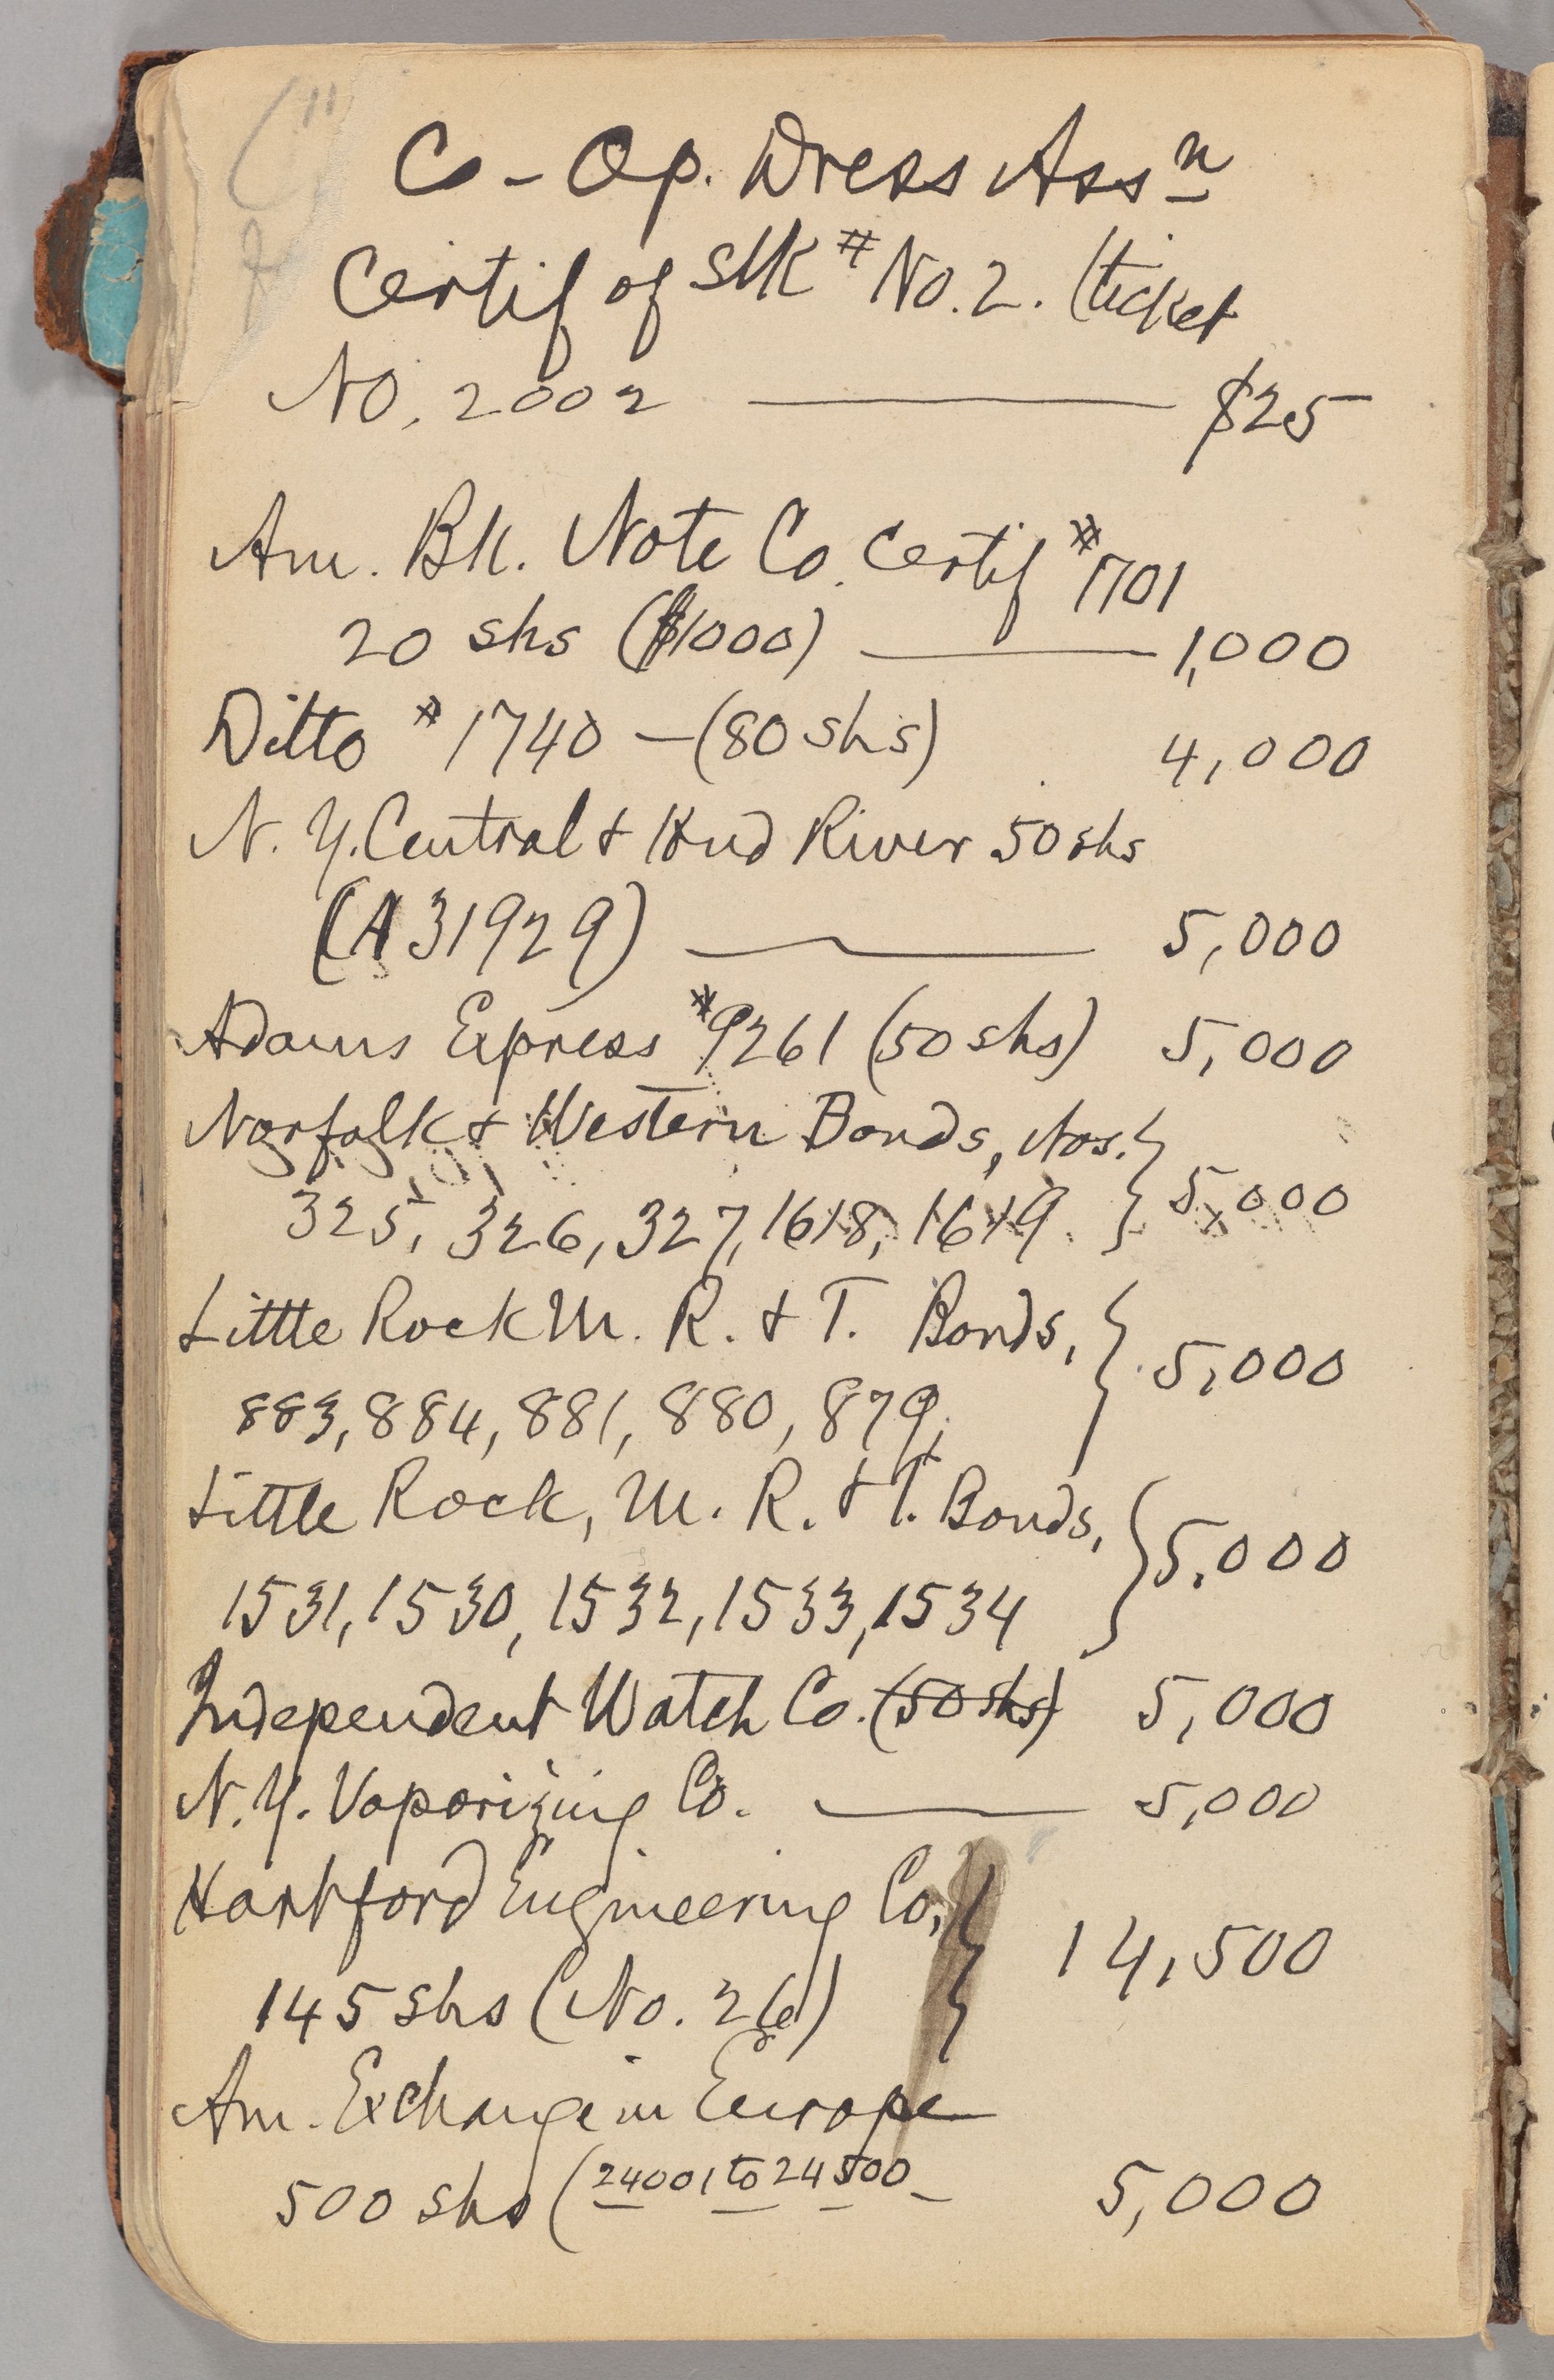 Co-Op. Dress Assn
Certif of Stk # No. 2. (ticket
No. 2002 — $25
Am. Bk. Note Co. Certif #1701
20 shs ($1000) — 1,000
Ditto #1740 — (80 shs) 4,000
N. Y. Central & Hud River 50 shs
(A 31929) — 5,000
Adams Express #9261 (50 shs) 5,000
Norfolk & Western Bonds, Nos. } 5,000
325, 326, 327, 1618, 1619.
Little Rock M. R. & T. Bonds, } 5,000
883, 884, 881, 880, 879.
Little Rock, M. R. & T. Bonds, } 5,000
1531, 1530, 1532, 1533, 1534
Independent Watch Co. (50 shs) 5,000
N. Y. Vaporizing Co. — 5,000
Hartford Engineering Co, } 14,500
145 shs (No. 26)
Am. Exchange in Europe
500 shs (24001 to 24500 5,000